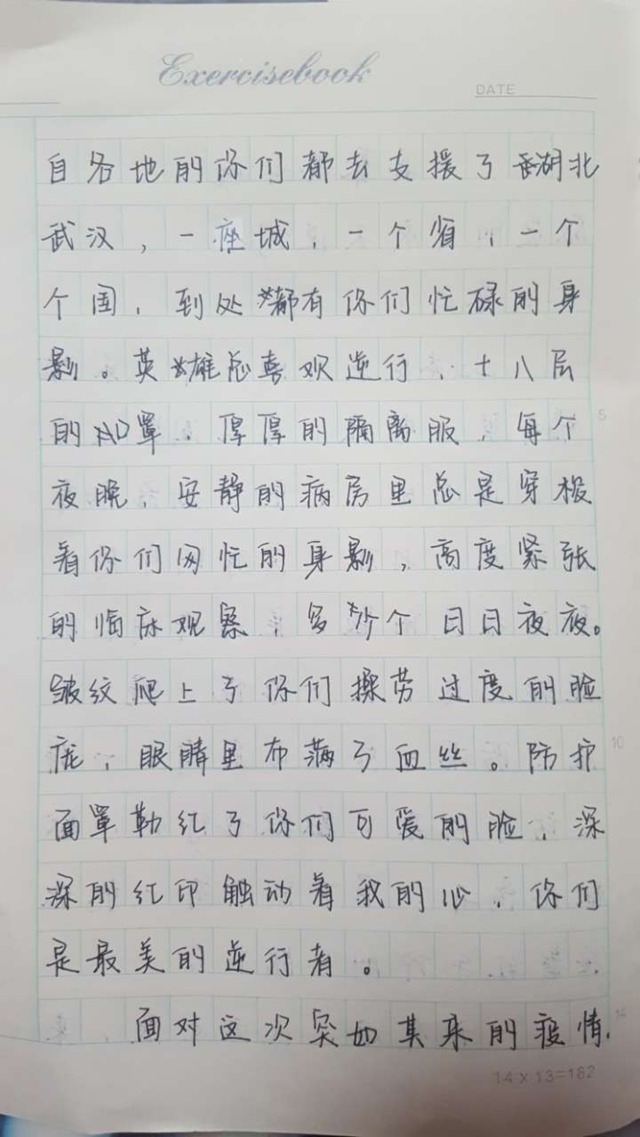 Exercisebook
DATE
自各地的你们都去支援了湖北
武汉，一座城，一个省，一个
个国，到处都有你们忙碌的身
影。英雄总喜欢逆行，十八层
的罩，厚厚的隔离服，每个
夜晚，安静的病房里总是穿梭
着你们匆忙的身影，高度紧张
的临床观察，多少个日日夜夜。
皱纹爬上了你们操劳过度的脸
庞，眼睛里布满了血丝。防护
面罩勒红了你们可爱的脸，深
深的红印触动着我的心，你们
是最美的逆行者。
面对这次突如其来的疫情，
5
10
14
14×13=182